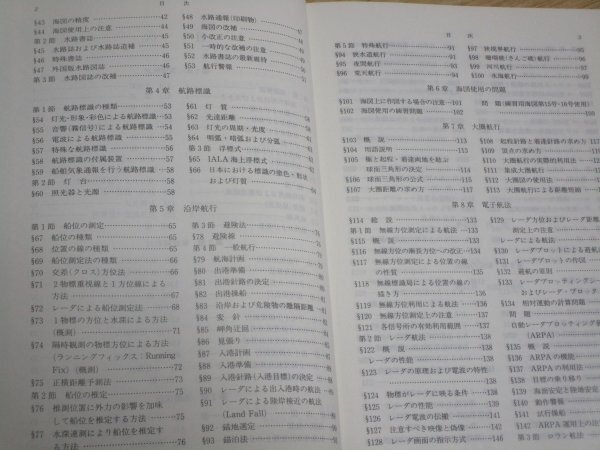 2 目次
§45 海図の精度……42
§44 海図使用上の注意……44
第2節 水路書誌……45
§45 水路書誌および水路誌追補……45
§46 特殊書誌……45
§47 外国版水路図誌……45
第3節 水路図誌の改補……47
§48 水路通報(印刷物)
§49 海図の改補
§50 小改正の注意
§51 一時的な改補の注意
§52 水路書誌の最新維持
§53 航行警報
第4章 航路標識
第1節 航路標識の種類……53
§54 灯光・形象・彩色による航路標識……53
§55 音響(霧信号)による航路標識……55
§56 電波による航路標識……55
§57 特殊な航路標識……57
§58 航路標識の付属装置……57
§59 船舶気象通報を行う航路標識……58
第2節 灯台……58
§60 照光器と光源……58
§61 灯質
§62 光達距離
§63 灯光の周期・光度
§64 明弧・暗弧および分弧
第3節 浮標式
§65 IALA海上浮標式
§66 日本における標識の塗色・形状および灯質
第5章 沿岸航行
第1節 船位の測定……65
§67 船位の種類……65
§68 位置の線の種類……65
§69 船位測定法の種類……66
§70 交差(クロス)方位法……66
§71 2物標重視線と1方位線による方法……68
§72 レーダによる船位測定法……69
§73 1物標の方位と水深による方法(概測)……71
§74 隔時観測の物標方位法による方法(ランニングフィックス:Running Fix)(概測)……72
§75 正横距離予測法……74
第2節 船位の推定……75
§76 推測位置に外力の影響を加味して船位を推定する方法……75
§77 水深連測により船位を推定する方法……76
第3節 避険法……76
§78 避険線
第4節 一般航行
§79 航海計画
§80 出港準備
§81 出港針路の決定
§82 出港操船
§83 沿岸および危険物の離隔距離
§84 変針
§85 岬角正回
§86 見張り
§87 入港計画
§88 入港準備
§89 入港針路(入港目標)の決定
§90 レーダによる出入港時の航法
§91 レーダによる陸岸接近の航法(Land Fall)
§92 錨地選定
§93 錨泊法
目次 3
第5節 特殊航行
§94 狭水道航行
§95 夜間航行
§96 荒天航行
§97 狭視界航行
§98 珊瑚礁(さんご礁)航行
§99 河川航行
§100 氷海航行
第6章 海図使用の問題
§101 海図上に作図する場合の注意……103
§102 海図使用の練習問題……103
問題(練習用海図第15号・16号使用)
第7章 大圏航行
§103 概説……107
§104 用語説明……107
§105 極と起程・着達両地を結ぶ球面三角形の決定……108
§106 球面三角形の公式……115
§107 大圏距離の求め方……117
§108 起程針路と着達針路の求め方
§109 頂点の求め方
§110 大圏航行の実際的利用法
§111 集成大圏航法
§112 集成大圏航行の求め方
§113 大圏航行による距離短縮
第8章 電子航法
§114 総説……133
第1節 無線方位測定による航法……133
§115 概説……133
§116 無線方位の漸長方位への改正……134
§117 無線方位測定による位置の線の性質……135
§118 無線標識局による位置の線の描き方……135
§119 無線方位利用による航法……135
§120 無線方位測定上の注意……135
§121 各信号所の有効利用範囲……135
第2節 レーダ航法……138
§122 概説……138
レーダの性能……138
§123 レーダの原理および電波の特性……138
§124 物標がレーダに映る条件……138
§125 レーダの性能……139
§126 レーダ電波の伝播……141
§127 注意すべき映像と偽像……142
§128 レーダ画面の指示方式……146
§129 レーダ方位およびレーダ距離測定上の注意
レーダによる航法
§130 レーダプロットによる避航
§131 レーダプロットの作図
§132 避航の原則
§133 レーダプロッティングシートおよびレーダ・プロッター
§134 相対運動の計算問題
問題
自動レーダプロッティング(ARPA)
§135 概説
§136 ARPAの機能
§137 ARPAの利用法
§138 目標の乗り移り
§139 海面安定と陸地安定
§140 動作警報
§141 試行操船
§142 ARPA運用上の注意
第3節 ロラン航法